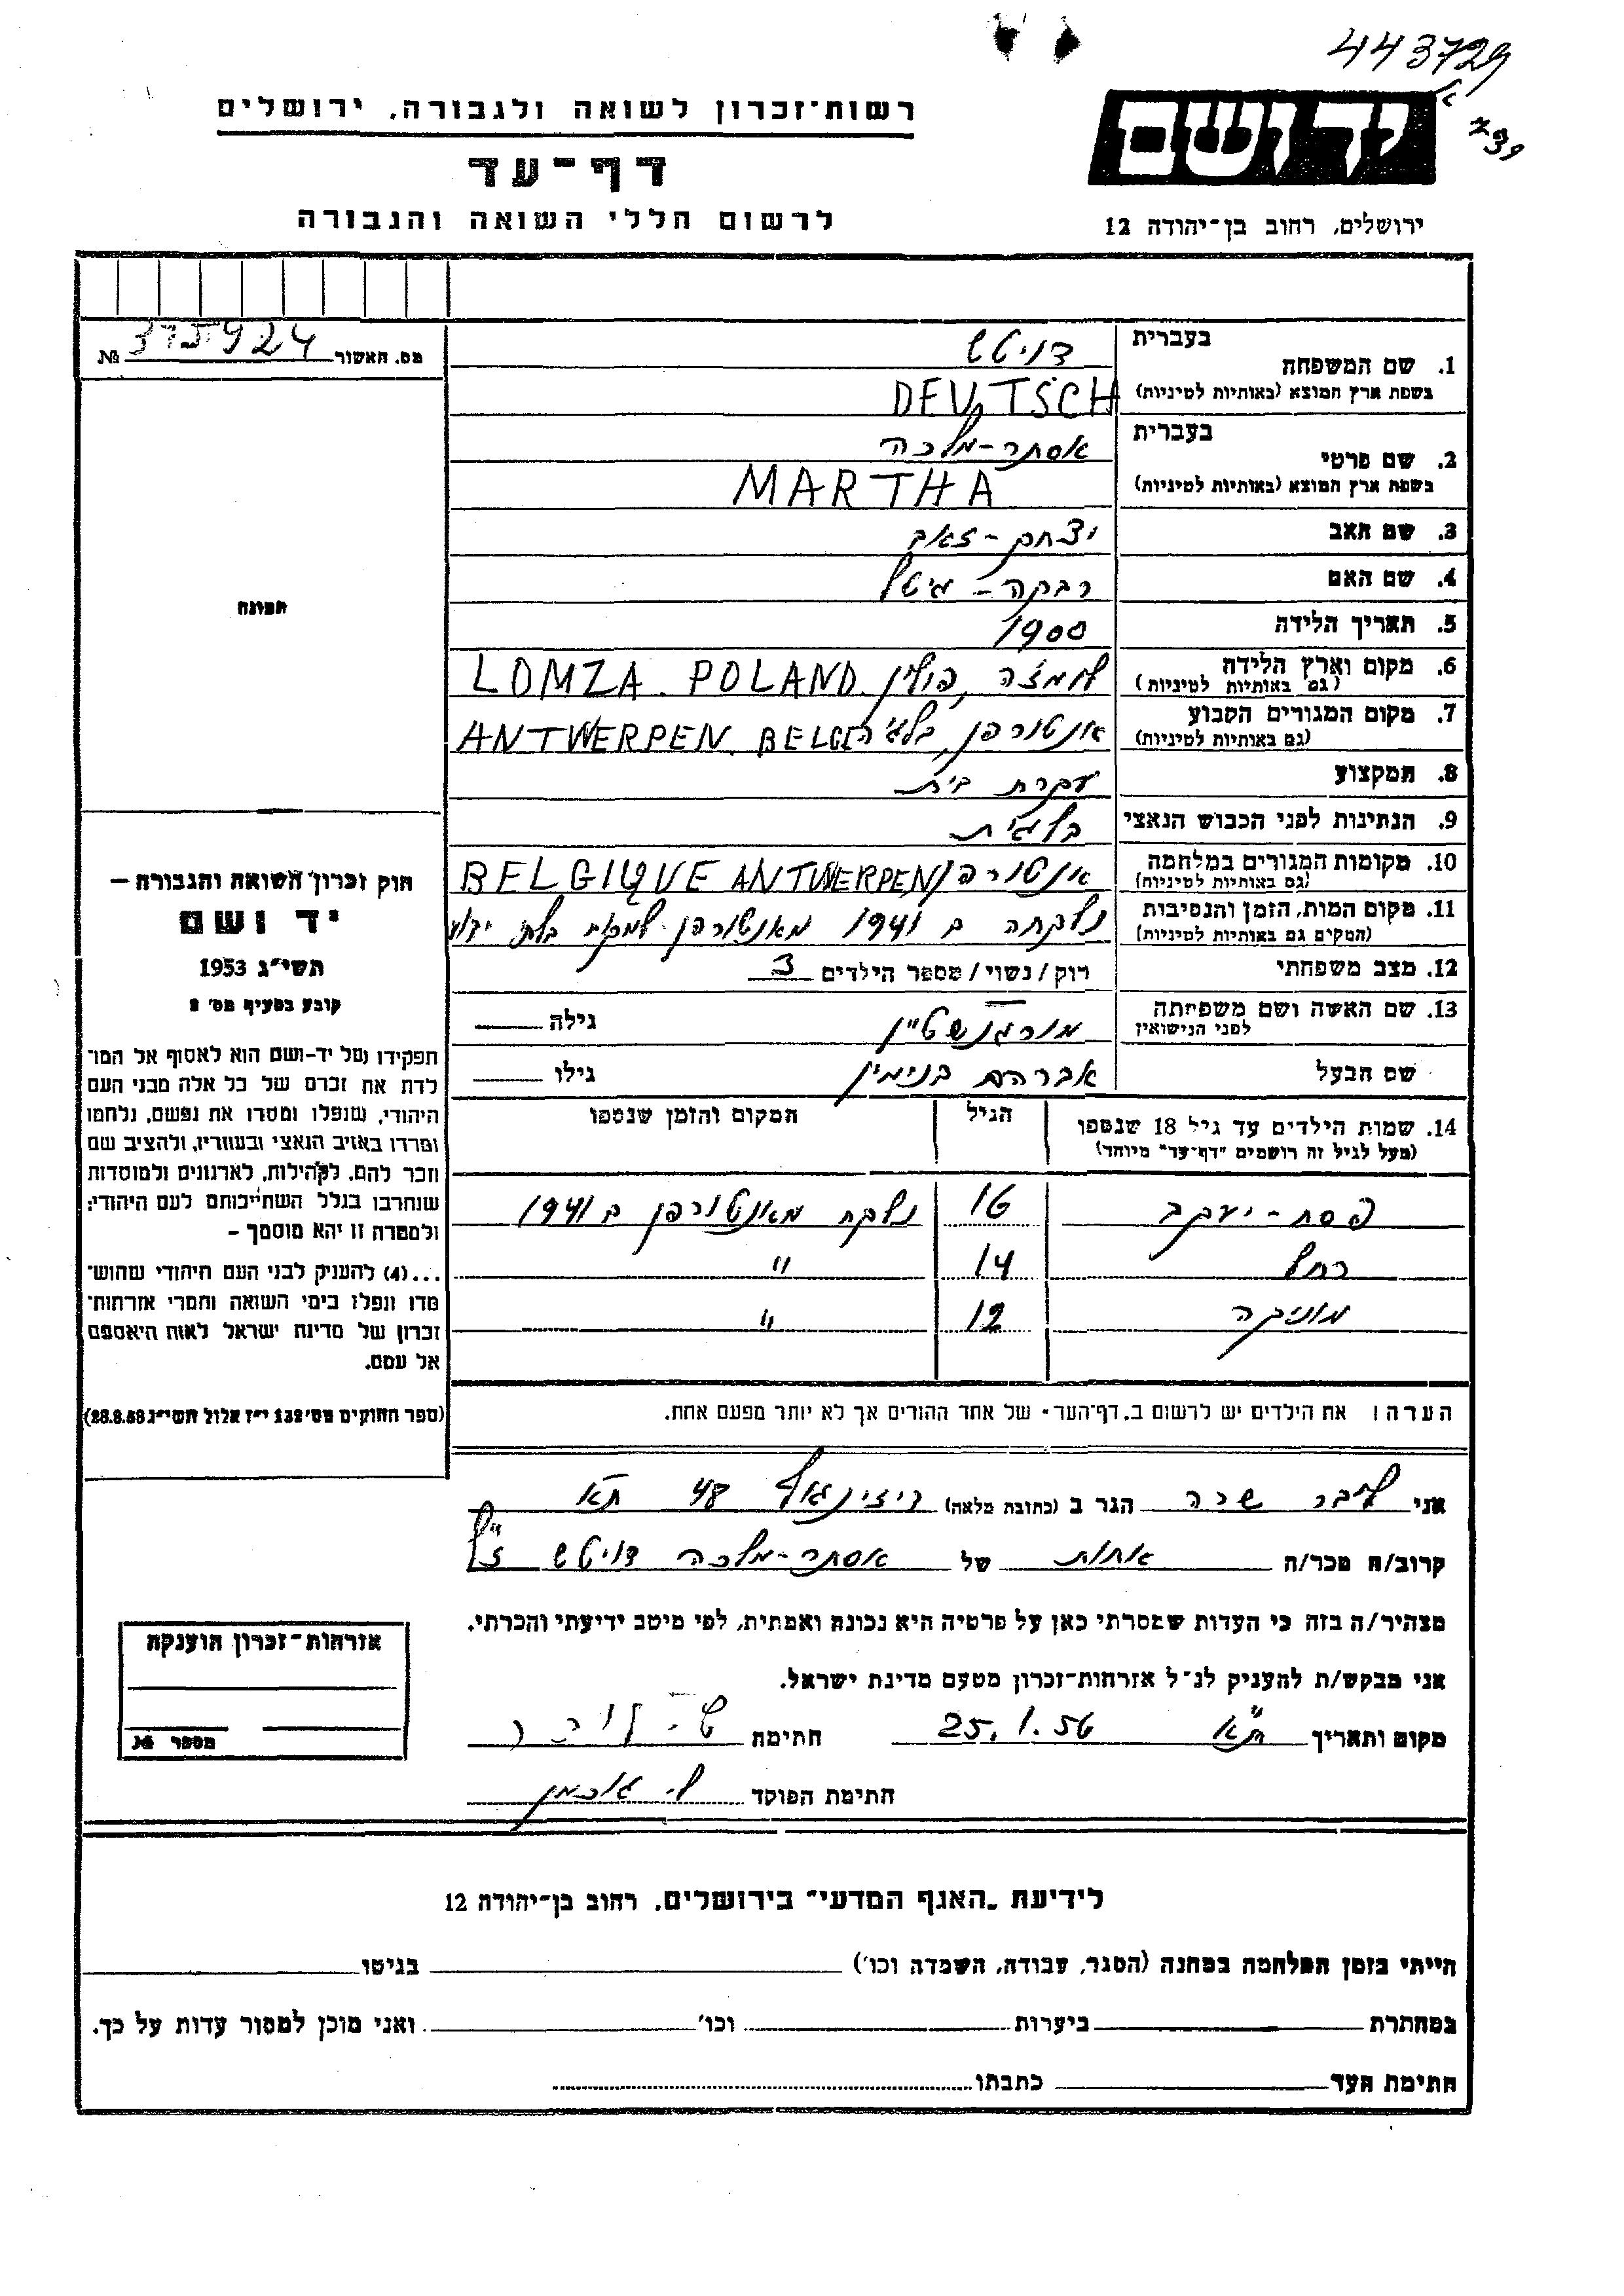 443729
239
רשות-זכרון לשואה ולגבורה, ירושלים
יד ושם
דף-עד
לרשום חללי השואה והגבורה
ירושלים, רחוב בן-יהודה 12
מס. האשור № 375924
תמונה
1. שם המשפחה בעברית דויטש
בשפת ארץ המוצא (באותיות לטיניות) DEUTSCH
2. שם פרטי בעברית אסתר-מלכה
בשפת ארץ המוצא (באותיות לטיניות) MARTHA
3. שם האב יצחק-זאב
4. שם האם רבקה-גיטל
5. תאריך הלידה 1900
6. מקום וארץ הלידה (גם באותיות לטיניות) לומזה, פולין LOMZA. POLAND
7. מקום המגורים הקבוע (גם באותיות לטיניות) אנטורפן, בלגיה ANTWERPEN. BELGI
8. המקצוע עקרת בית
9. הנתינות לפני הכבוש הנאצי בלגית
10. מקומות המגורים במלחמה (גם באותיות לטיניות) אנטורפן BELGIQUE ANTWERPEN
11. מקום המות, הזמן והנסיבות (המקום גם באותיות לטיניות) נלקחה ב 1941 מאנטורפן למקום בלתי ידוע
12. מצב משפחתי רוק/נשוי/מספר הילדים 3
13. שם האשה ושם משפחתה לפני הנישואין מורגנשטיין גילה
שם הבעל אברהם בנימין גילו
14. שמות הילדים עד גיל 18 שנספו (מעל לגיל זה רושמים "דף-עד" מיוחד) הגיל המקום והזמן שנספו
פסח-יעקב 16 נלקח מאנטורפן ב 1941
רחל 14 "
מוניקה 12 "
הערה! את הילדים יש לרשום ב"דף-העד" של אחד ההורים אך לא יותר מפעם אחת.
חוק זכרון השואה והגבורה –
יד ושם
תשי"ג 1953
קובע בסעיף מס' 2
תפקידו של יד-ושם הוא לאסוף אל המו־
לדת את זכרם של כל אלה מבני העם
היהודי, שנפלו ומסרו את נפשם, נלחמו
ומרדו באויב הנאצי ובעוזריו, ולהציב שם
וזכר להם, לקהילות, לארגונים ולמוסדות
שנחרבו בגלל השתייכותם לעם היהודי;
ולמטרה זו יהא מוסמך –
...(4) להעניק לבני העם היהודי שהוש־
מדו ונפלו בימי השואה והמרי אזרחות־
זכרון של מדינת ישראל לאות היאספם
אל עמם.
(ספר החוקים מס' 132 י"ז אלול תשי"ג 28.8.53)
אני ליבר שרה הגר ב (כתובת מלאה) דיזינגוף 48 תא
קרוב/ה מכר/ה אחות של אסתר-מלכה דויטש ז"ל
מצהיר/ה בזה כי העדות שמסרתי כאן על פרטיה היא נכונה ואמתית, לפי מיטב ידיעתי והכרתי.
אני מבקש/ת להעניק לנ"ל אזרחות-זכרון מטעם מדינת ישראל.
מקום ותאריך ת"א 25.1.56 חתימה ש. ליבר
חתימת הפוקד
אזרחות-זכרון הוענקה
מספר №
לידיעת "האגף המדעי" בירושלים, רחוב בן-יהודה 12
הייתי בזמן המלחמה במחנה (הסגר, עבודה, השמדה וכו') בגיטו
במחתרת ביערות וכו' ואני מוכן למסור עדות על כך.
חתימת העד כתבתו